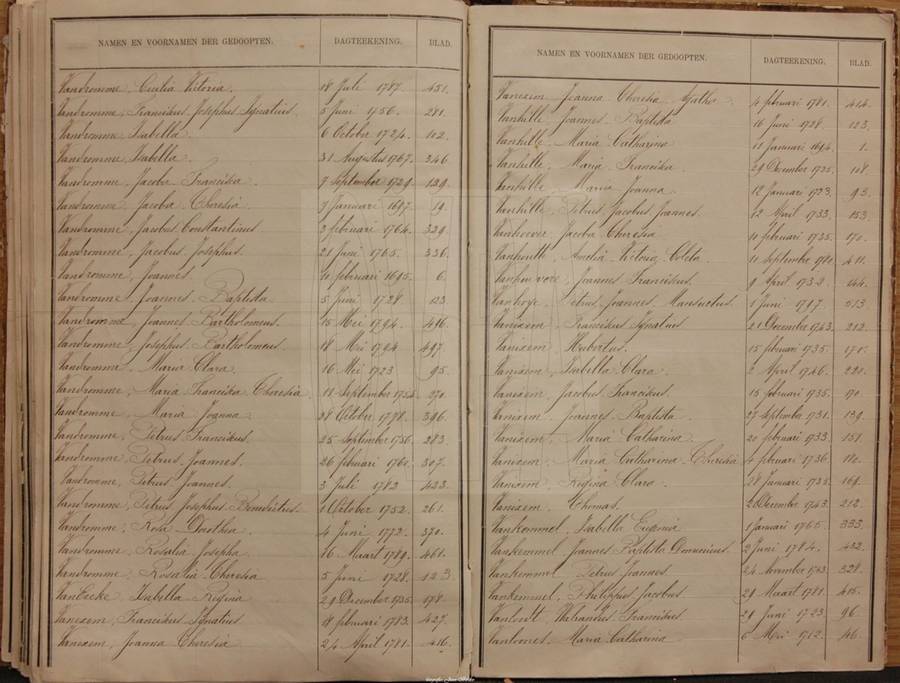 NAMEN EN VOORNAMEN DER GEDOOPTEN. DAGTEEKENING. BLAD.
Vandromme, Cecilia Victoria. 18 Juli 1787. 451.
Vandromme, Franciskus Josephus Ignatius. 5 Juni 1756. 281.
Vandromme, Isabella. 6 October 1724. 102.
Vandromme, Isabella. 31 Augustus 1767. 346
Vandromme, Jacoba Franciska. 9 September 1729. 129.
Vandromme, Jacoba Theresia. 9 Januari 1697. 19.
Vandromme, Jacobus Constantinus 3 februari 1764. 329.
Vandromme, Jacobus Josephus. 21 Juni 1765. 336.
Vandromme, Joannes. februari 1695. 6.
Vandromme, Joannes Baptista 5 Juni 1728 123
Vandromme, Joannes Bartholomeus. 15 Mei 1794. 496.
Vandromme, Josephus Bartholomeus 18 Mei 1794 497.
Vandromme, Maria Clara. 16 Mei 1723 95.
Vandromme, Maria Franciska Theresia. 11 September 270.
Vandromme, Maria Joanna 28 October 1778. 396.
Vandromme, Petrus Franciskus. 25 September 1756. 283.
Vandromme, Petrus Joannes. 26 februari 1760. 307.
Vandromme, Petrus Joannes. 3 Juli 1782 423.
Vandromme, Petrus Josephus Benedictus. 1 October 1752. 261.
Vandromme, Rosa Dorothea. 4 Juni 1772. 370.
Vandromme, Rosalia Josepha. 16 Maart 1789. 461.
Vandromme, Rosalia Theresia 5 Juni 1728. 123.
VanEecke, Isabella Regina 29 December 1735. 178.
Vaneixem, Franciskus Ignatius 18 februari 1783. 427.
Vaneixem, Joanna Theresia 24 April 1781. 416.
NAMEN EN VOORNAMEN DER GEDOOPTEN. DAGTEEKENING. BLAD.
Vaneixem, Joanna Theresia Agatha. 4 februari 1781. 414.
Vanhille, Joannes Baptista 16 Juni 1728. 123.
Vanhille, Maria Catharina 11 Januari 1694. 1.
Vanhille, Maria Franciska 29 December 1725. 108.
Vanhille, Maria Joanna 12 Januari 1723. 93.
Vanhille, Petrus Jacobus Joannes. 12 April 1733. 153.
Jacoba Theresia 10 februari 1735. 170.
Vanhoutte, Amelia Victoria Coleta. 11 September 1780. 411.
Joannes Franciskus. 9 April 1732. 144.
Vanhoye, Petrus Joannes Mansuetus. 1 Juni 1797. 513.
Vanixem, Franciskus Ignatius 21 December 1743. 212.
Vanixem, Hubertus. 15 februari 1735. 170.
Vanixem, Isabella Clara. 2 April 1746. 220.
Vanixem, Jacobus Franciskus. 15 februari 1735. 170.
Vanixem, Joannes Baptista 27 September 1731. 139.
Vanixem, Maria Catharina 20 februari 1733. 151.
Vanixem, Maria Catharina Theresia 4 februari 1736. 180.
Vanixem, Regina Clara. 28 Januari 1735. 169.
Vanixem, Thomas. December 1743. 212.
Vankemmel, Isabella Eugenia 1 Januari 1765. 333.
Vankemmel, Joannes Baptista Dominicus. 2 Juni 1784. 432.
Vankemmel, Petrus Joannes 24 November 1763. 328.
Vankemmel, Philippus Jacobus 29 Maart 1781. 415.
Franciskus 29 Juni 1723. 96.
Vantoones, Maria Catharina 6 Mei 1712. 46.